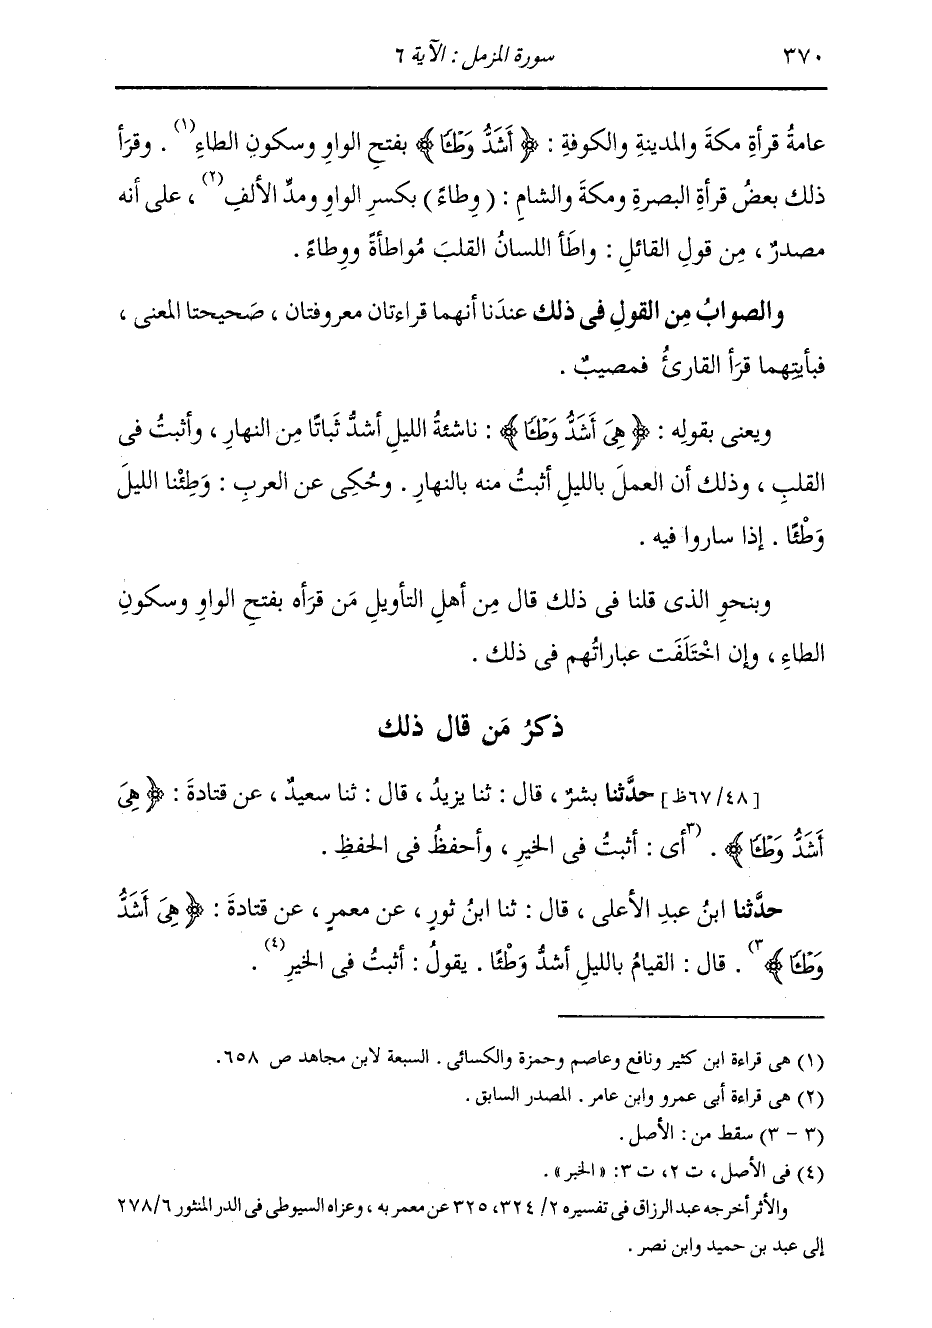 ٣٧٠ سورة المزمل : الآية ٦
عامةُ قرأةِ مكةَ والمدينةِ والكوفةِ : ﴿ أَشَدُّ وَطْـًٔا ﴾ بفتحِ الواوِ وسكونِ الطاءِ(١) . وقرَأ
ذلك بعضُ قرأةِ البصرةِ ومكةَ والشامِ : ( وِطاءً ) بكسرِ الواوِ ومدِّ الألفِ(٢) ، على أنه
مصدرٌ ، مِن قولِ القائلِ : واطَأ اللسانُ القلبَ مُواطأةً ووِطاءً .
والصوابُ مِن القولِ فى ذلك عندَنا أنهما قراءتان معروفتان ، صَحيحتا المعنى ،
فبأيتِهما قرَأ القارئُ فمصيبٌ .
ويعنى بقولِه : ﴿ هِىَ أَشَدُّ وَطْـًٔا ﴾ : ناشئةُ الليلِ أشدُّ ثَباتًا مِن النهارِ ، وأثبتُ فى
القلبِ ، وذلك أن العملَ بالليلِ أثبتُ منه بالنهارِ . وحُكِى عن العربِ : وَطِئْنا الليلَ
وَطْئًا . إذا ساروا فيه .
وبنحوِ الذى قلنا فى ذلك قال مِن أهلِ التأويلِ مَن قرَأه بفتحِ الواوِ وسكونِ
الطاءِ ، وإن اخْتَلَفَت عباراتُهم فى ذلك .
ذكرُ مَن قال ذلك
[٦٧/٤٨ظ] حدَّثنا بشرٌ ، قال : ثنا يزيدُ ، قال : ثنا سعيدٌ ، عن قتادةَ : ﴿ هِىَ
أَشَدُّ وَطْـًٔا ﴾ . (٣أى : أثبتُ فى الخيرِ ، وأحفظُ فى الحفظِ .
حدَّثنا ابنُ عبدِ الأعلى ، قال : ثنا ابنُ ثورٍ ، عن معمرٍ ، عن قتادةَ : ﴿ هِىَ أَشَدُّ
وَطْـًٔا ﴾٣) . قال : القيامُ بالليلِ أشدُّ وَطْئًا . يقولُ : أثبتُ فى الخيرِ(٤) .
(١) هى قراءة ابن كثير ونافع وعاصم وحمزة والكسائى . السبعة لابن مجاهد ص ٦٥٨.
(٢) هى قراءة أبى عمرو وابن عامر . المصدر السابق .
(٣ - ٣) سقط من : الأصل .
(٤) فى الأصل ، ت ٢، ت ٣: « الخبر » .
والأثر أخرجه عبد الرزاق فى تفسيره ٢/ ٣٢٤، ٣٢٥ عن معمر به ، وعزاه السيوطى فى الدر المنثور ٢٧٨/٦
إلى عبد بن حميد وابن نصر .